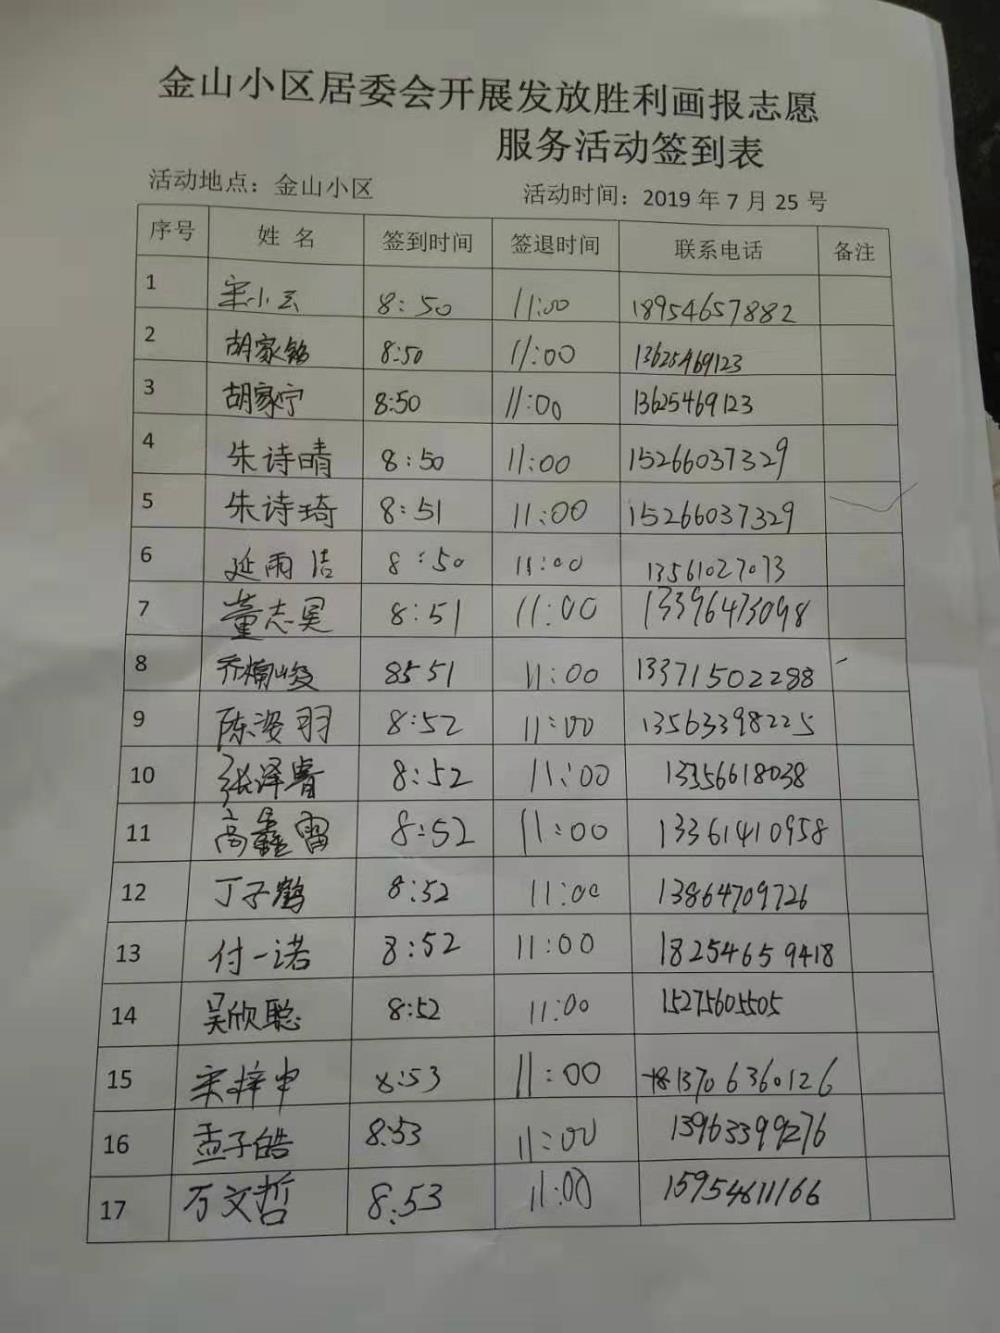 金山小区居委会开展发放胜利画报志愿
服务活动签到表
活动地点：金山小区 活动时间：2019 年 7 月 25 号
序号 姓 名 签到时间 签退时间 联系电话 备注
1 宋小云 8:50 11:00 18954657882
2 胡家铭 8:50 11:00 13625469123
3 胡家宁 8:50 11:00 13625469123
4 朱诗晴 8:50 11:00 15266037329
5 朱诗琦 8:51 11:00 15266037329
6 延雨洁 8:50 11:00 13561027073
7 董志昊 8:51 11:00 13396473098
8 乔 峻 8551 11:00 13371502288
9 陈姿羽 8:52 11:00 13563398225
10 张泽睿 8:52 11:00 13356618038
11 高鑫雷 8:52 11:00 13361410958
12 丁子鹤 8:52 11:00 13864709726
13 付一诺 8:52 11:00 18254659418
14 吴欣聪 8:52 11:00 15275605505
15 宋梓申 8:53 11:00 13706360126
16 孟子皓 8:53 11:00 13963399276
17 万文哲 8:53 11:00 15954611166